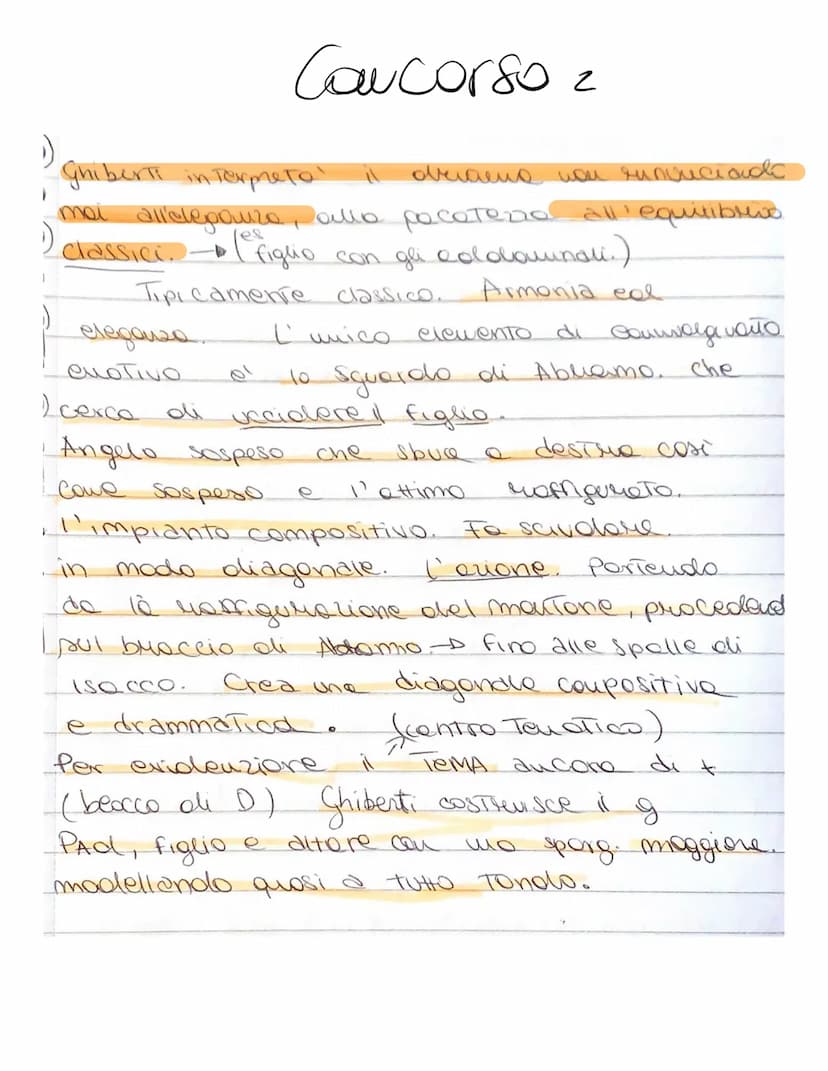 Concorso 2
Ghiberti interpreta' il dramma non rinunciando
mai all'eleganza, alla pacatezza all'equilibrio
classici. → (es figlio con gli addominali.)
Tipicamente classico. Armonia ed
eleganza. L'unico elemento di
emotivo e' lo sguardo di Abramo. che
cerca di uccidere il figlio.
Angelo sospeso che sbuca a destra così
come sospeso e l'attimo raffigurato.
l'impianto compositivo. Fa scivolare
in modo diagonale. l'azione. Partendo
da là raffigurazione del montone, procedend
sul braccio di → fino alle spalle di
Isacco. Crea una diagonale compositiva
e drammatica. (centro Tematico)
Per evidenziare il TEMA ancora di +
( di D) Ghiberti costruisce il g
PAd, figlio e altare con una sporg. maggiore.
modellando quasi a tutto Tondo.